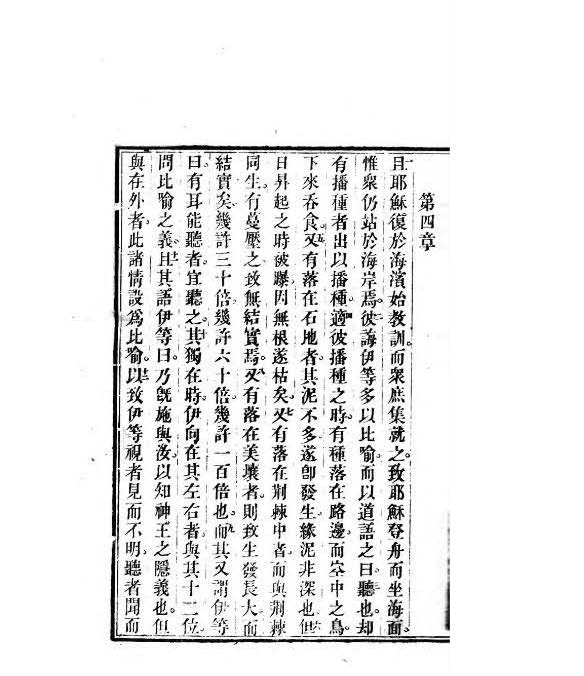 第四章
一且耶穌復於海濱始教訓。而衆庶集就之。致耶穌登舟而坐海面。
惟衆仍站於海岸焉。二彼誨伊等多以比喻而以道語之曰。聽也。三却
有播種者出以播種。四適彼播種之時。有種落在路邊。而空中之鳥
下來吞食。五又有落在石地者。其泥不多遂卽發生緣泥非深也。六但
日昇起之時被曝因無根遂枯矣。七又有落在荆棘中者而與荆棘
同生。有蔓壓之致無結實焉。八又有落在美壤者。則致生發長大而
結實矣。幾許三十倍。幾許六十倍。幾許一百倍也。九而其又謂伊等
曰。有耳能聽者宜聽之。十其獨在時。伊向在其左右者。與其十二位
問比喻之義。十一且其語伊等曰。乃旣施與汝以知神王之隱義也。但
與在外者。此諸情設爲比喻。十二以致伊等視者見而不明。聽者聞而